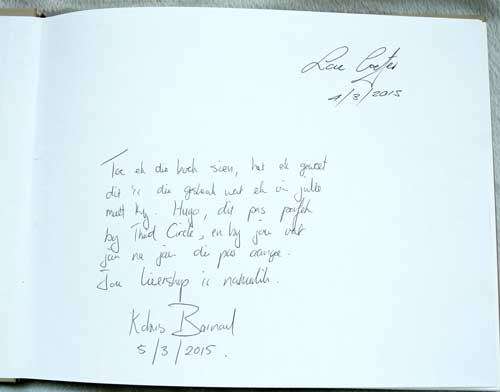 4/3/2015
Toe ek die boek sien, het ek geweet
dit is die geskenk wat ek vir julle
moet kry. Hugo, dit pas perfek
by Third Circle, en by jou wat
jaar na jaar die pas aangee.
Jou leierskap is natuurlik.
Kobus Barnard
5/3/2015.